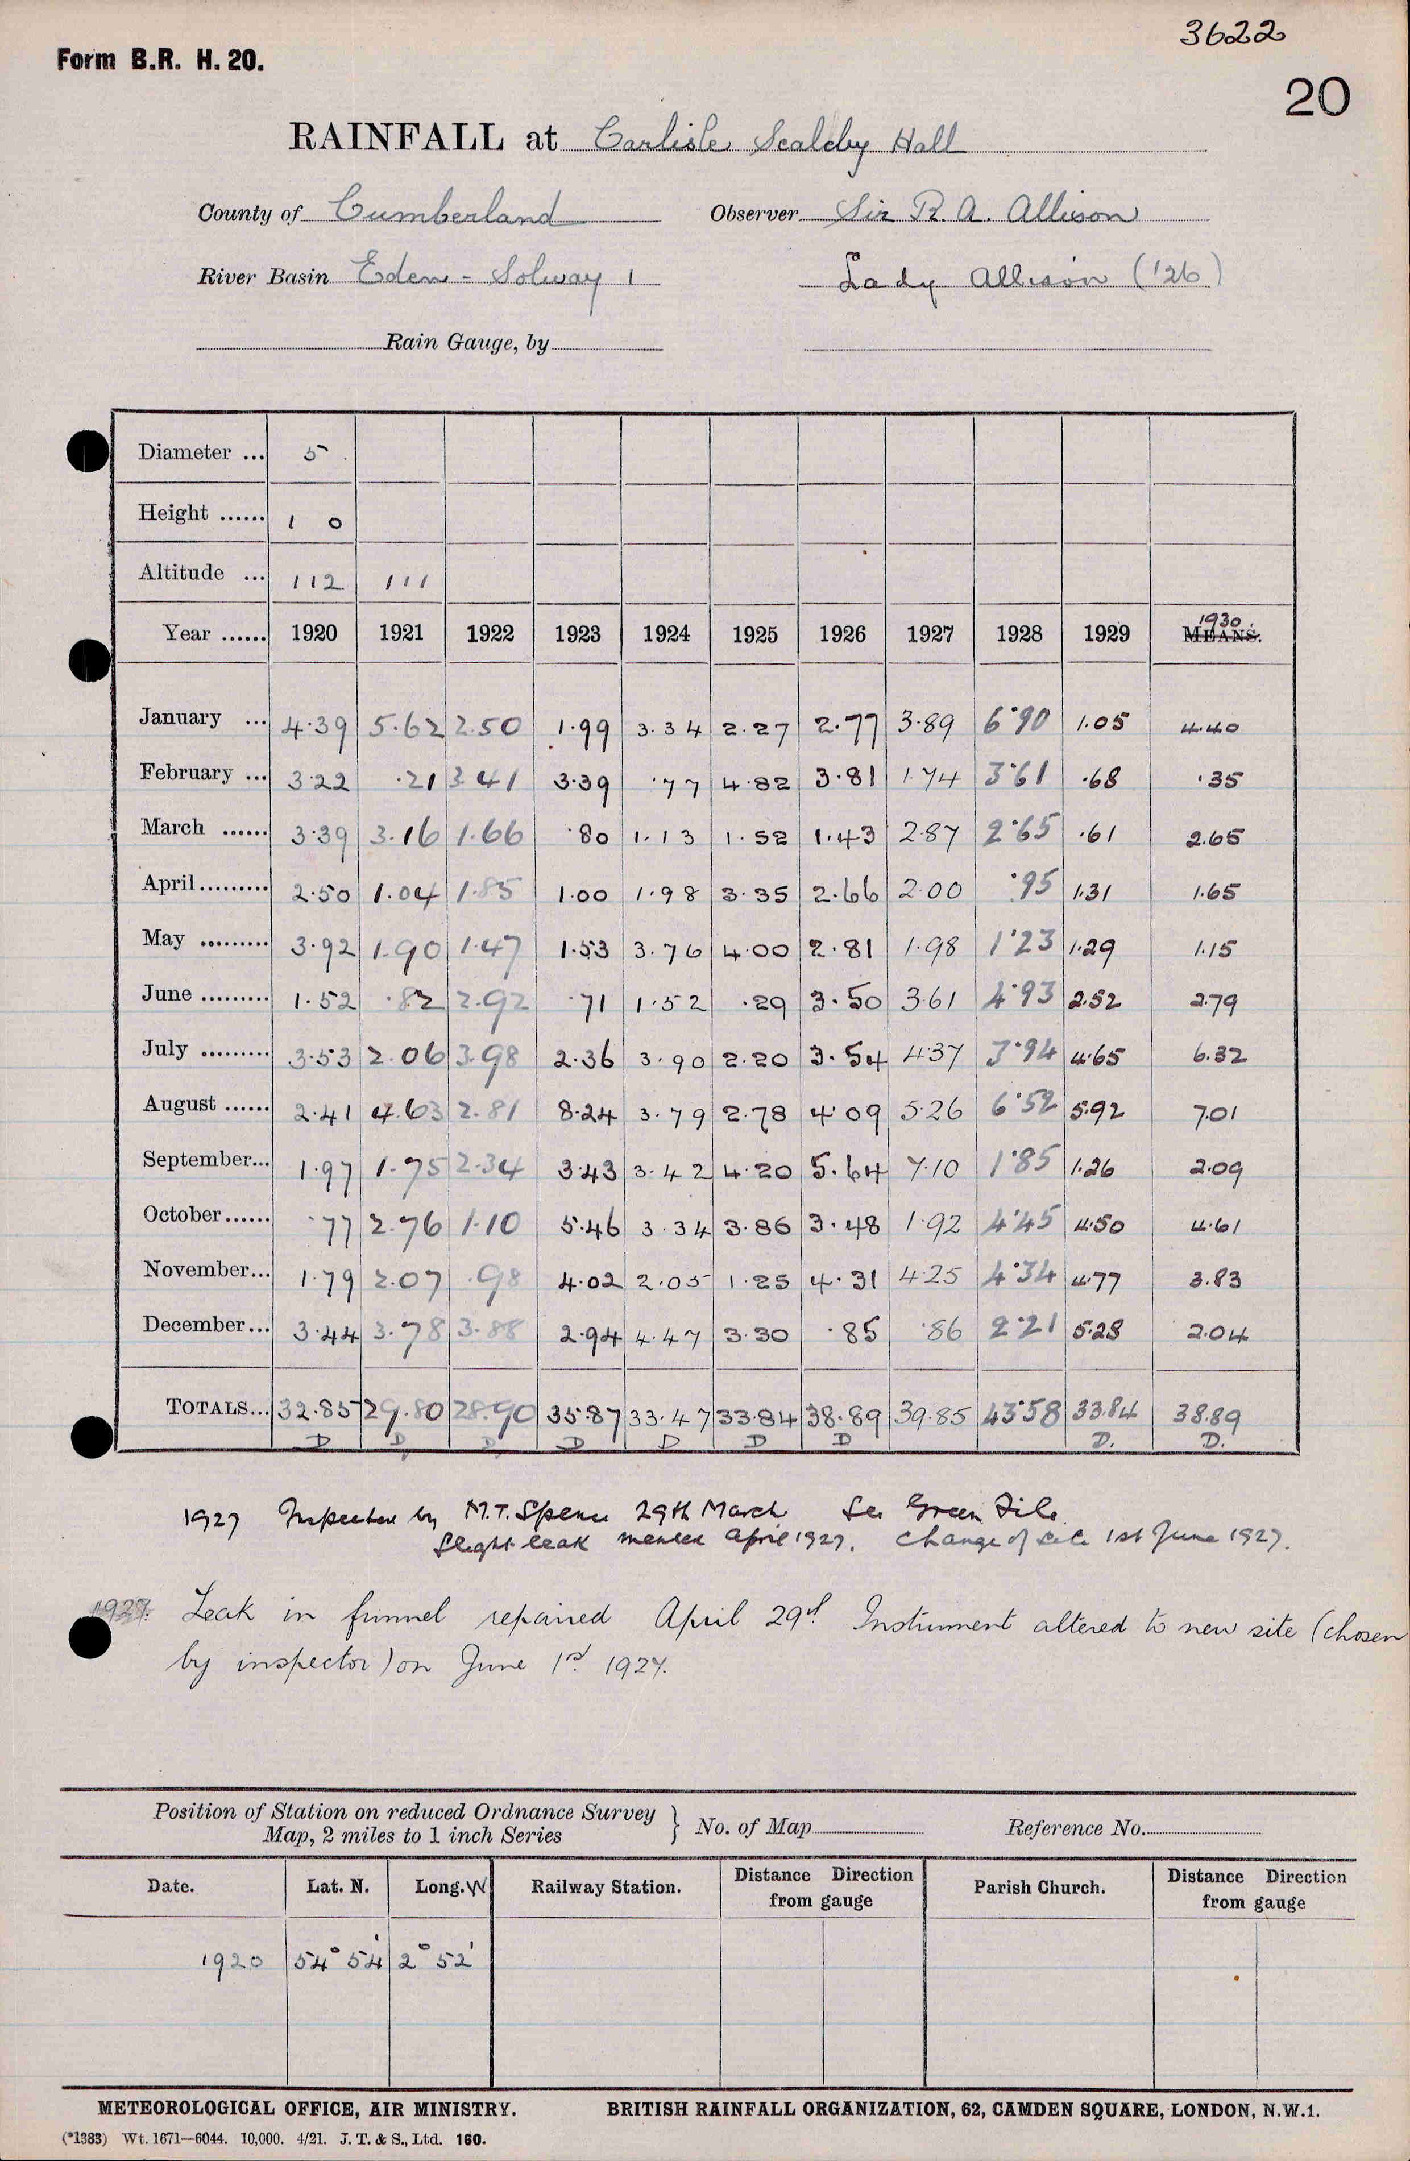 3622
Form B.R. H. 20.
20
RAINFALL at Carlisle Scaleby Hall
County of Cumberland Observer Sir R. A. Allison
River Basin Eden - Solway 1 Lady Allison ('26)
Rain Gauge, by
Diameter ... 5
Height ...... 1 0
Altitude ... 112 111
Year ...... 1920 1921 1922 1923 1924 1925 1926 1927 1928 1929 1930 MEANS.
January ... 4.39 5.62 2.50 1.99 3.34 2.27 2.77 3.89 6.90 1.05 4.40
February ... 3.22 .21 3.41 3.39 .77 4.82 3.81 1.74 3.61 .68 .35
March ...... 3.39 3.16 1.66 .80 1.13 1.52 1.43 2.87 2.65 .61 2.65
April......... 2.50 1.04 1.85 1.00 1.98 3.35 2.66 2.00 .95 1.31 1.65
May ......... 3.92 1.90 1.47 1.53 3.76 4.00 2.81 1.98 1.23 1.29 1.15
June ......... 1.52 .82 2.92 .71 1.52 .29 3.50 3.61 4.93 2.52 2.79
July ......... 3.53 2.06 3.98 2.36 3.90 2.20 3.54 4.37 3.94 4.65 6.32
August ...... 2.41 4.63 2.81 8.24 3.79 2.78 4.09 5.26 6.52 5.92 7.01
September... 1.97 1.75 2.34 3.43 3.42 4.20 5.64 7.10 1.85 1.26 2.09
October...... .77 2.76 1.10 5.46 3.34 3.86 3.48 1.92 4.45 4.50 4.61
November... 1.79 2.07 .98 4.02 2.05 1.25 4.31 4.25 4.34 4.77 3.83
December... 3.44 3.78 3.88 2.94 4.47 3.30 .85 .86 2.21 5.28 2.04
TOTALS... 32.85 29.80 28.90 35.87 33.47 33.84 38.89 39.85 43.58 33.84 38.89
D D D D D D D D. D.
1927 Inspected by M.T. Spence 29th March See Green File
Slight leak mended April 1927. Change of site 1st June 1927.
1927. Leak in funnel repaired April 29th. Instrument altered to new site (chosen
by inspector) on June 1st. 1927.
Position of Station on reduced Ordnance Survey
Map, 2 miles to 1 inch Series } No. of Map Reference No.
Date. Lat. N. Long. W Railway Station. Distance Direction from gauge Parish Church. Distance Direction from gauge
1920 54° 54' 2° 52'
METEOROLOGICAL OFFICE, AIR MINISTRY. BRITISH RAINFALL ORGANIZATION, 62, CAMDEN SQUARE, LONDON, N.W.1.
(*1383) Wt. 1671—6044. 10,000. 4/21. J. T. & S., Ltd. 160.